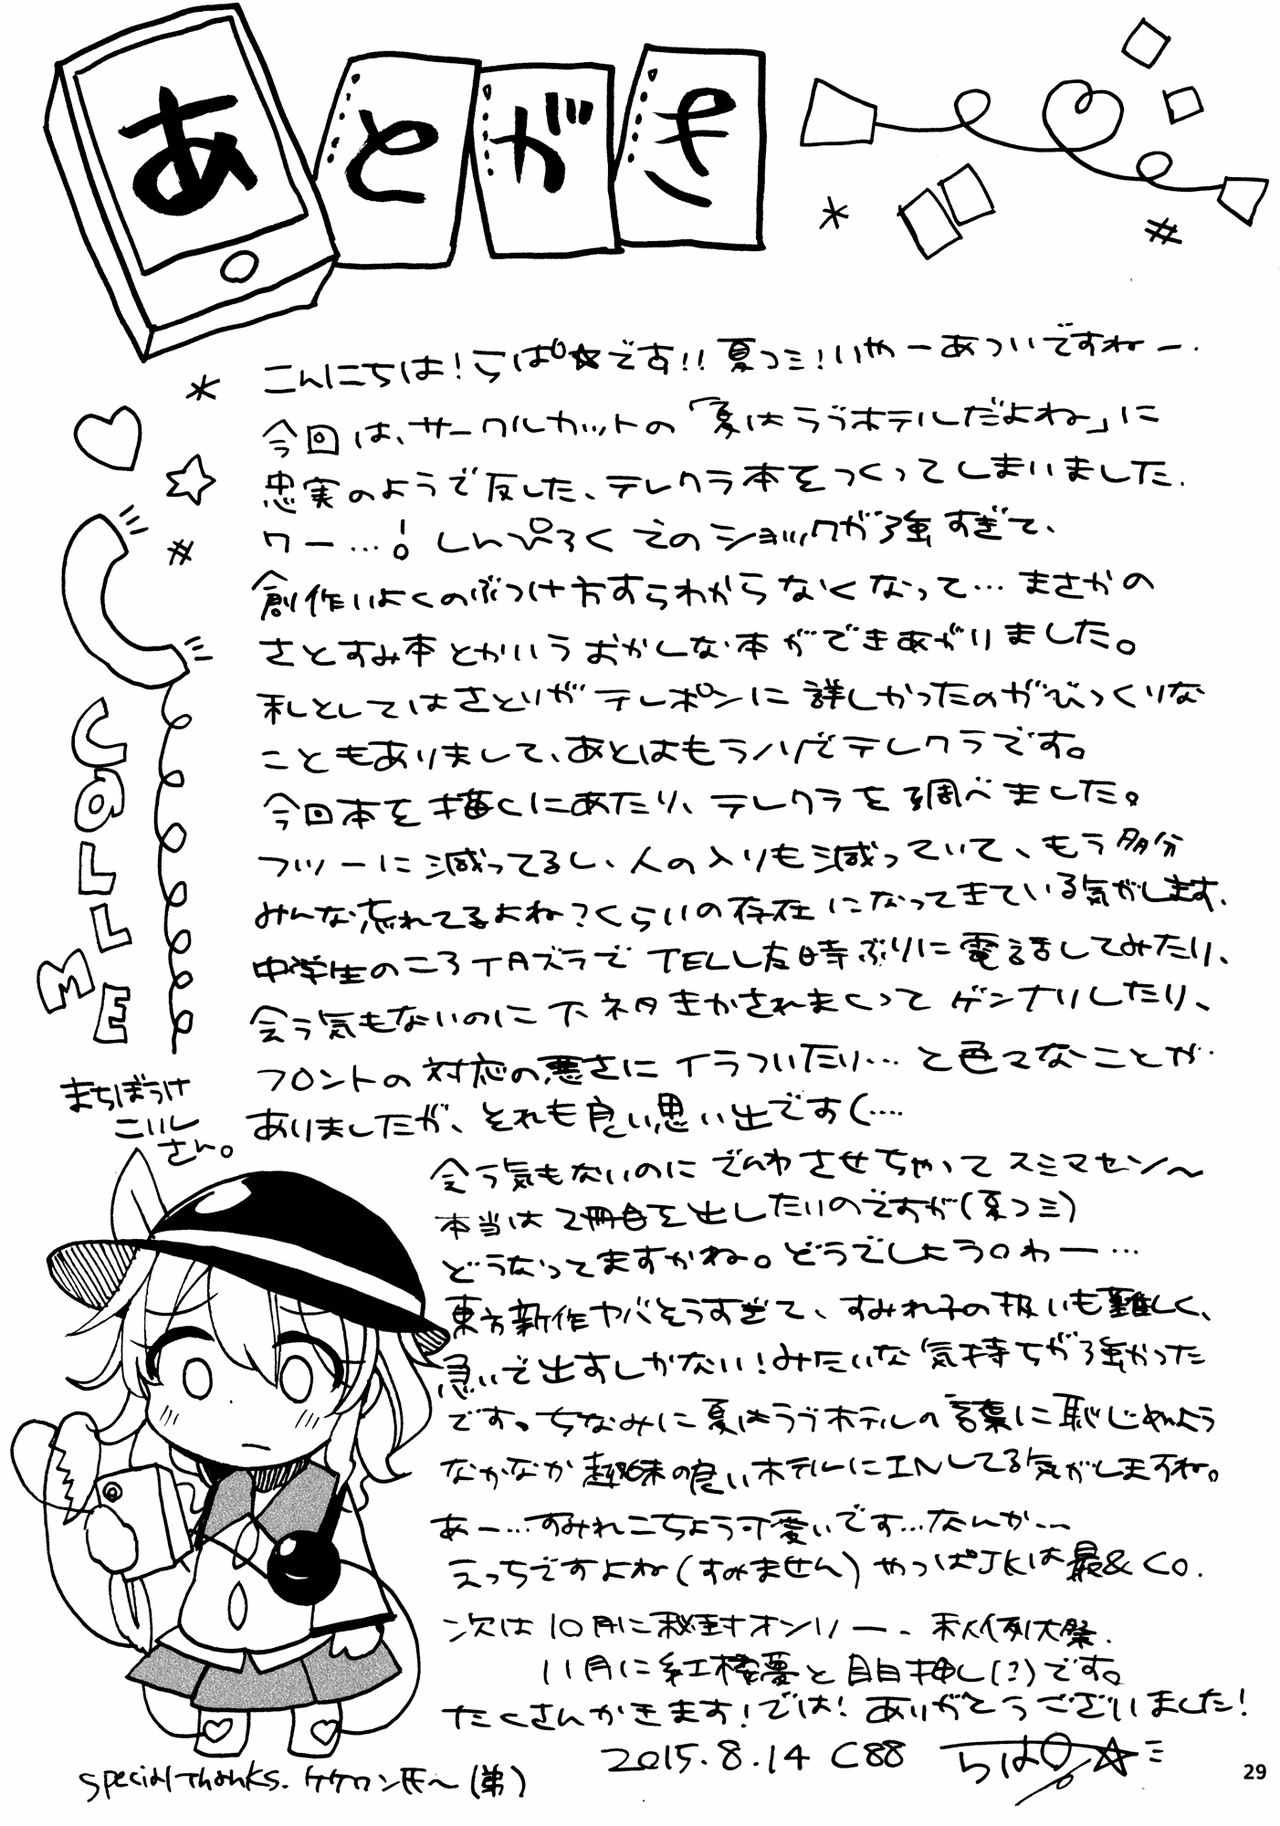 あとがき
こんにちは！らぱ☆です!!夏コミ！いやーあついですねー.
今回は、サークルカットの「夏はラブホテルだよね」に
忠実のようで反した、テレクラ本をつくってしまいました.
ワー…！しんぴろくえのショックが強すぎて、
創作いよくのぶつけ方すらわからなくなって…まさかの
さとすみ本とかいうおかしな本ができあがりました。
私としてはさとりがテレポンに詳しかったのがびっくりな
こともありまして、あとはもうノリでテレクラです。
今回本を描くにあたり、テレクラを調べました。
フツーに減ってるし、人の入りも減っていて、もう多分
みんな忘れてるよね？くらいの存在になってきている気がします.
中学生のころイタズラでTELした時ぶりに電話してみたり、
会う気もないのに下ネタきかされまくってゲンナリしたり、
フロントの対応の悪さにイラついたり…と色々なことが
ありましたが、それも良い思い出です(….
会う気もないのにでんわさせちゃってスミマセン〜
本当は2冊目を出したいのですが(夏コミ)
どうなってますかね。どうでしょう。わー…
東方新作ヤバそうすぎて、すみれ子の扱いも難しく、
急いで出すしかない！みたいな気持ちが強かった
です。ちなみに夏はラブホテルの言葉に恥じぬよう
なかなか趣味の良いホテルにINしてる気がしますね。
あー…すみれこちょう可愛いです…なんか…
えっちですよね(すみません)やっぱJKは最&Co.
次は10月に秘封オンリー、秋例大祭.
11月に紅楼夢と目白押し(?)です。
たくさんかきます！では！ありがとうございました！
2015.8.14 C88 らぱ☆ミ
CALL ME
まちぼうけ
こいし
さん。
special thanks. ケケワン氏〜(弟)
29